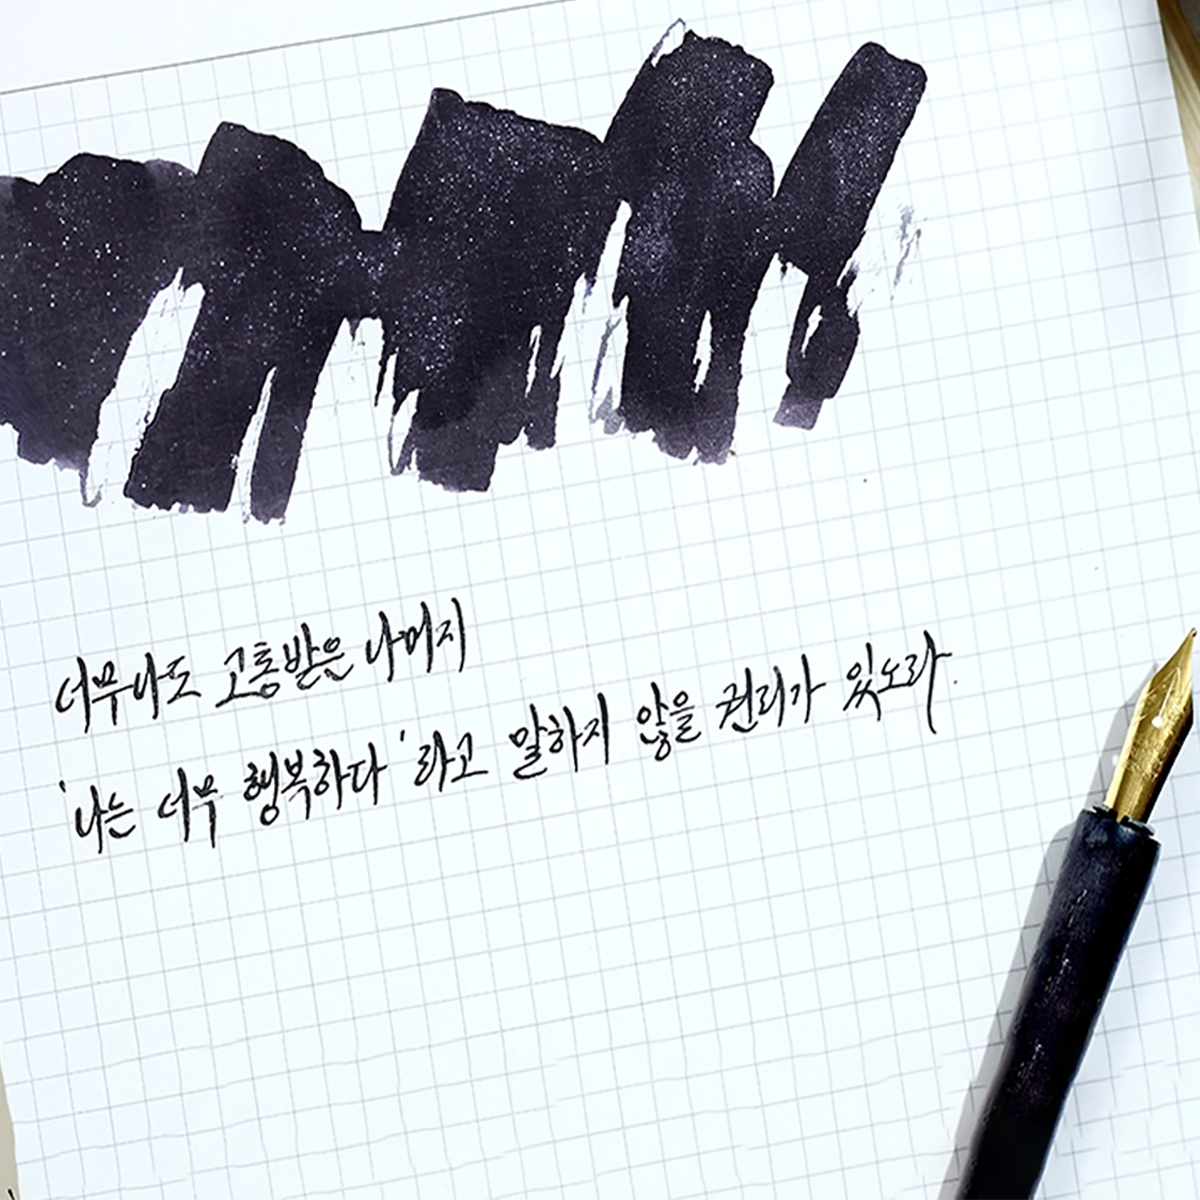 너무나도 고통받은 나머지
'나는 너무 행복하다'라고 말하지 않을 권리가 있노라.